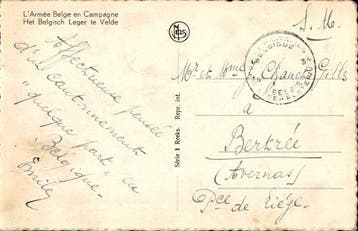 L'Armée Belge en Campagne
Het Belgisch Leger te Velde
S. M.
Affectueuse pensée
d'un cantonnement
"quelque part" en
Belgique.
Emile
NELS
Série 1 Reeks. Repr. int.
BELGIQUE
BELGIË
Mr et Mme
à
Bertrée
(Avernas)
Pce de Liége.